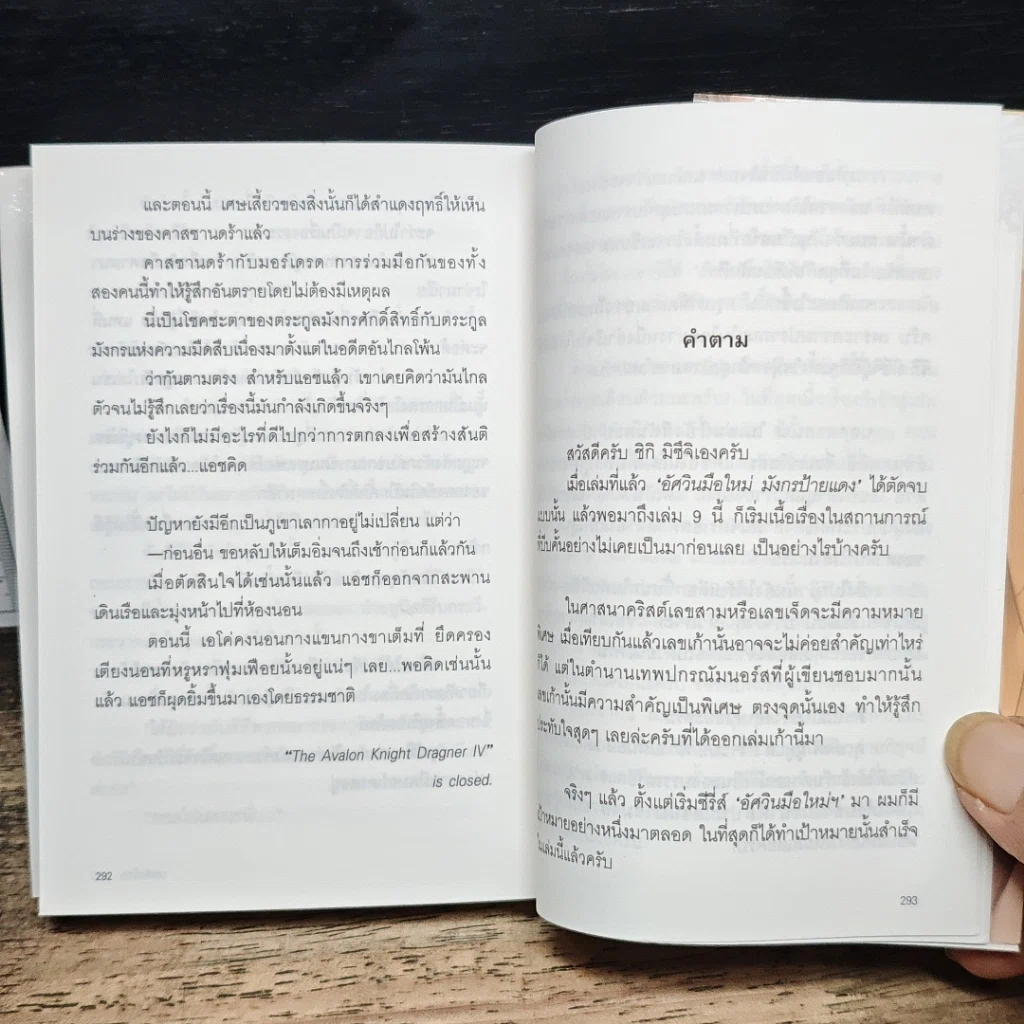 และตอนนี้ เศษเสี้ยวของสิ่งนั้นก็ได้สำแดงฤทธิ์ให้เห็น
บนร่างของคาสซานดร้าแล้ว
คาสซานดร้ากับมอร์เดรด การร่วมมือกันของทั้ง
สองคนนี้ทำให้รู้สึกอันตรายโดยไม่ต้องมีเหตุผล
นี่เป็นโชคชะตาของตระกูลมังกรศักดิ์สิทธิ์กับตระกูล
มังกรแห่งความมืดสืบเนื่องมาตั้งแต่ในอดีตอันไกลโพ้น
ว่ากันตามตรง สำหรับแอชแล้ว เขาเคยคิดว่ามันไกล
ตัวจนไม่รู้สึกเลยว่าเรื่องนี้มันกำลังเกิดขึ้นจริงๆ
ยังไงก็ไม่มีอะไรที่ดีไปกว่าการตกลงเพื่อสร้างสันติ
ร่วมกันอีกแล้ว...แอชคิด
ปัญหายังมีอีกเป็นภูเขาเลากาอยู่ไม่เปลี่ยน แต่ว่า
—ก่อนอื่น ขอหลับให้เต็มอิ่มจนถึงเช้าก่อนก็แล้วกัน
เมื่อตัดสินใจได้เช่นนั้นแล้ว แอชก็ออกจากสะพาน
เดินเรือและมุ่งหน้าไปที่ห้องนอน
ตอนนี้ เอโค่คงนอนกางแขนกางขาเต็มที่ ยึดครอง
เตียงนอนที่หรูหราฟุ่มเฟือยนั้นอยู่แน่ๆ เลย...พอคิดเช่นนั้น
แล้ว แอชก็ผุดยิ้มขึ้นมาเองโดยธรรมชาติ
“The Avalon Knight Dragner IV”
is closed.
292
คำตาม
สวัสดีครับ ชิกิ มิซึจิเองครับ
เมื่อเล่มที่แล้ว ‘อัศวินมือใหม่ มังกรป้ายแดง’ ได้ตัดจบ
แบบนั้น แล้วพอมาถึงเล่ม 9 นี้ ก็เริ่มเนื้อเรื่องในสถานการณ์
บีบคั้นอย่างไม่เคยเป็นมาก่อนเลย เป็นอย่างไรบ้างครับ
ในศาสนาคริสต์เลขสามหรือเลขเจ็ดจะมีความหมาย
พิเศษ เมื่อเทียบกันแล้วเลขเก้านั้นอาจจะไม่ค่อยสำคัญเท่าไหร่
ก็ได้ แต่ในตำนานเทพปกรณัมนอร์สที่ผู้เขียนชอบมากนั้น
เลขเก้านั้นมีความสำคัญเป็นพิเศษ ตรงจุดนั้นเอง ทำให้รู้สึก
ประทับใจสุดๆ เลยล่ะครับที่ได้ออกเล่มเก้านี้มา
จริงๆ แล้ว ตั้งแต่เริ่มซีรี่ส์ ‘อัศวินมือใหม่ฯ’ มา ผมก็มี
เป้าหมายอย่างหนึ่งมาตลอด ในที่สุดก็ได้ทำเป้าหมายนั้นสำเร็จ
ในเล่มนี้แล้วครับ
293